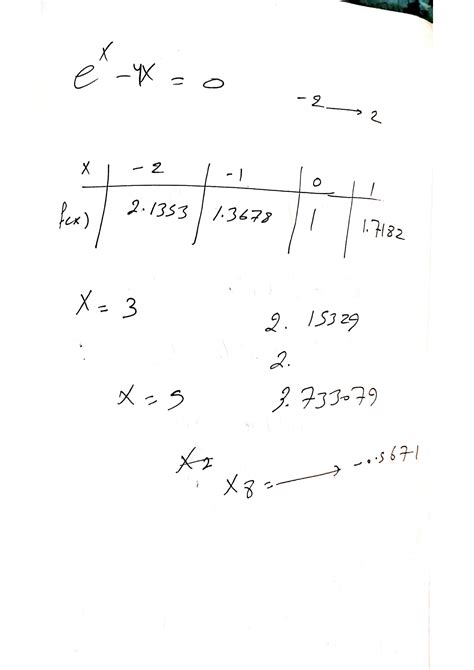 e^x - 4x = 0
-2 → 2
x | -2 | -1 | 0 | 1
f(x) | 2.1353 | 1.3678 | 1 | 1.7182
x = 3 2. 15329
2.
x = 5 3.733079
x2
x8 = → -.5671